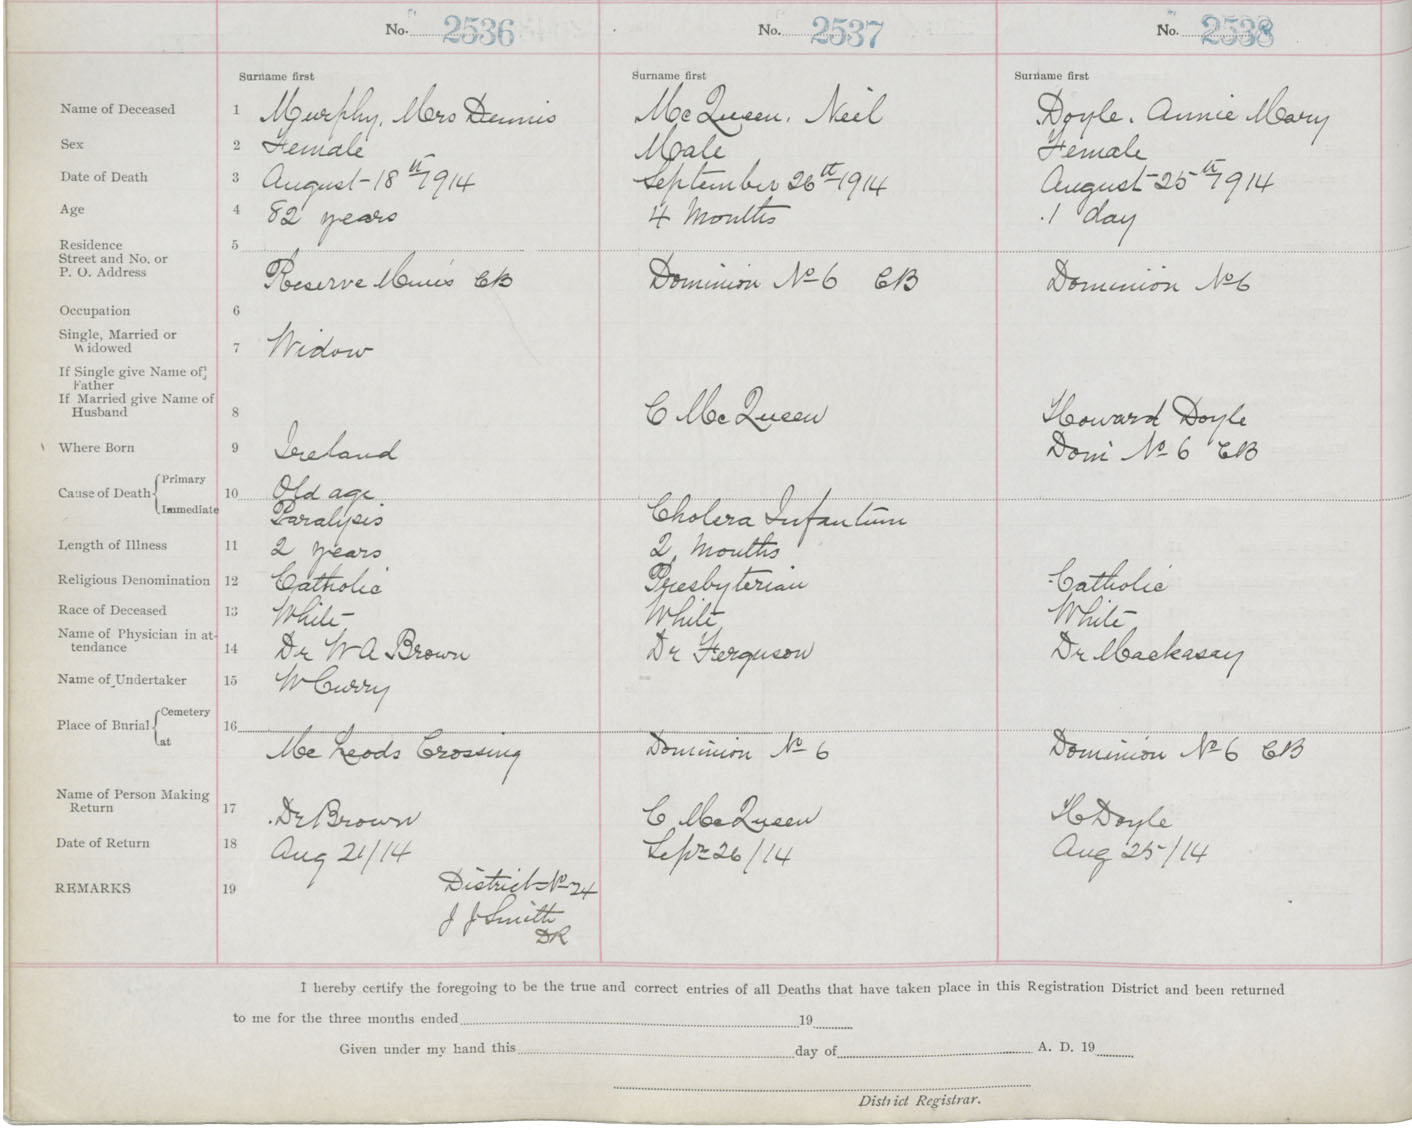 No. 2536 No. 2537 No. 2538
Surname first Surname first Surname first
Name of Deceased 1 Murphy, Mrs Dennis McQueen, Neil Doyle, Annie Mary
Sex 2 Female Male Female
Date of Death 3 August 18th 1914 September 26th 1914 August 25th 1914
Age 4 82 years 4 Months 1 day
Residence 5
Street and No. or
P. O. Address Reserve Mines CB Dominion No 6 CB Dominion No 6
Occupation 6
Single, Married or
Widowed 7 Widow
If Single give Name of
Father
If Married give Name of
Husband 8 C McQueen Howard Doyle
Where Born 9 Ireland Dom No 6 CB
Cause of Death Primary 10 Old age
Immediate Paralysis Cholera Infantum
Length of Illness 11 2 years 2 months
Religious Denomination 12 Catholic Presbyterian Catholic
Race of Deceased 13 White White White
Name of Physician in at-
tendance 14 Dr W A Brown Dr Ferguson Dr Mackasay
Name of Undertaker 15 W Curry
Place of Burial Cemetery 16
at McLeods Crossing Dominion No 6 Dominion No 6 CB
Name of Person Making
Return 17 Dr Brown C McQueen H Doyle
Date of Return 18 Aug 21/14 Sepr 26/14 Aug 25/14
REMARKS 19 District No 24
J J Smith
DR
I hereby certify the foregoing to be the true and correct entries of all Deaths that have taken place in this Registration District and been returned
to me for the three months ended 19
Given under my hand this day of A. D. 19
District Registrar.